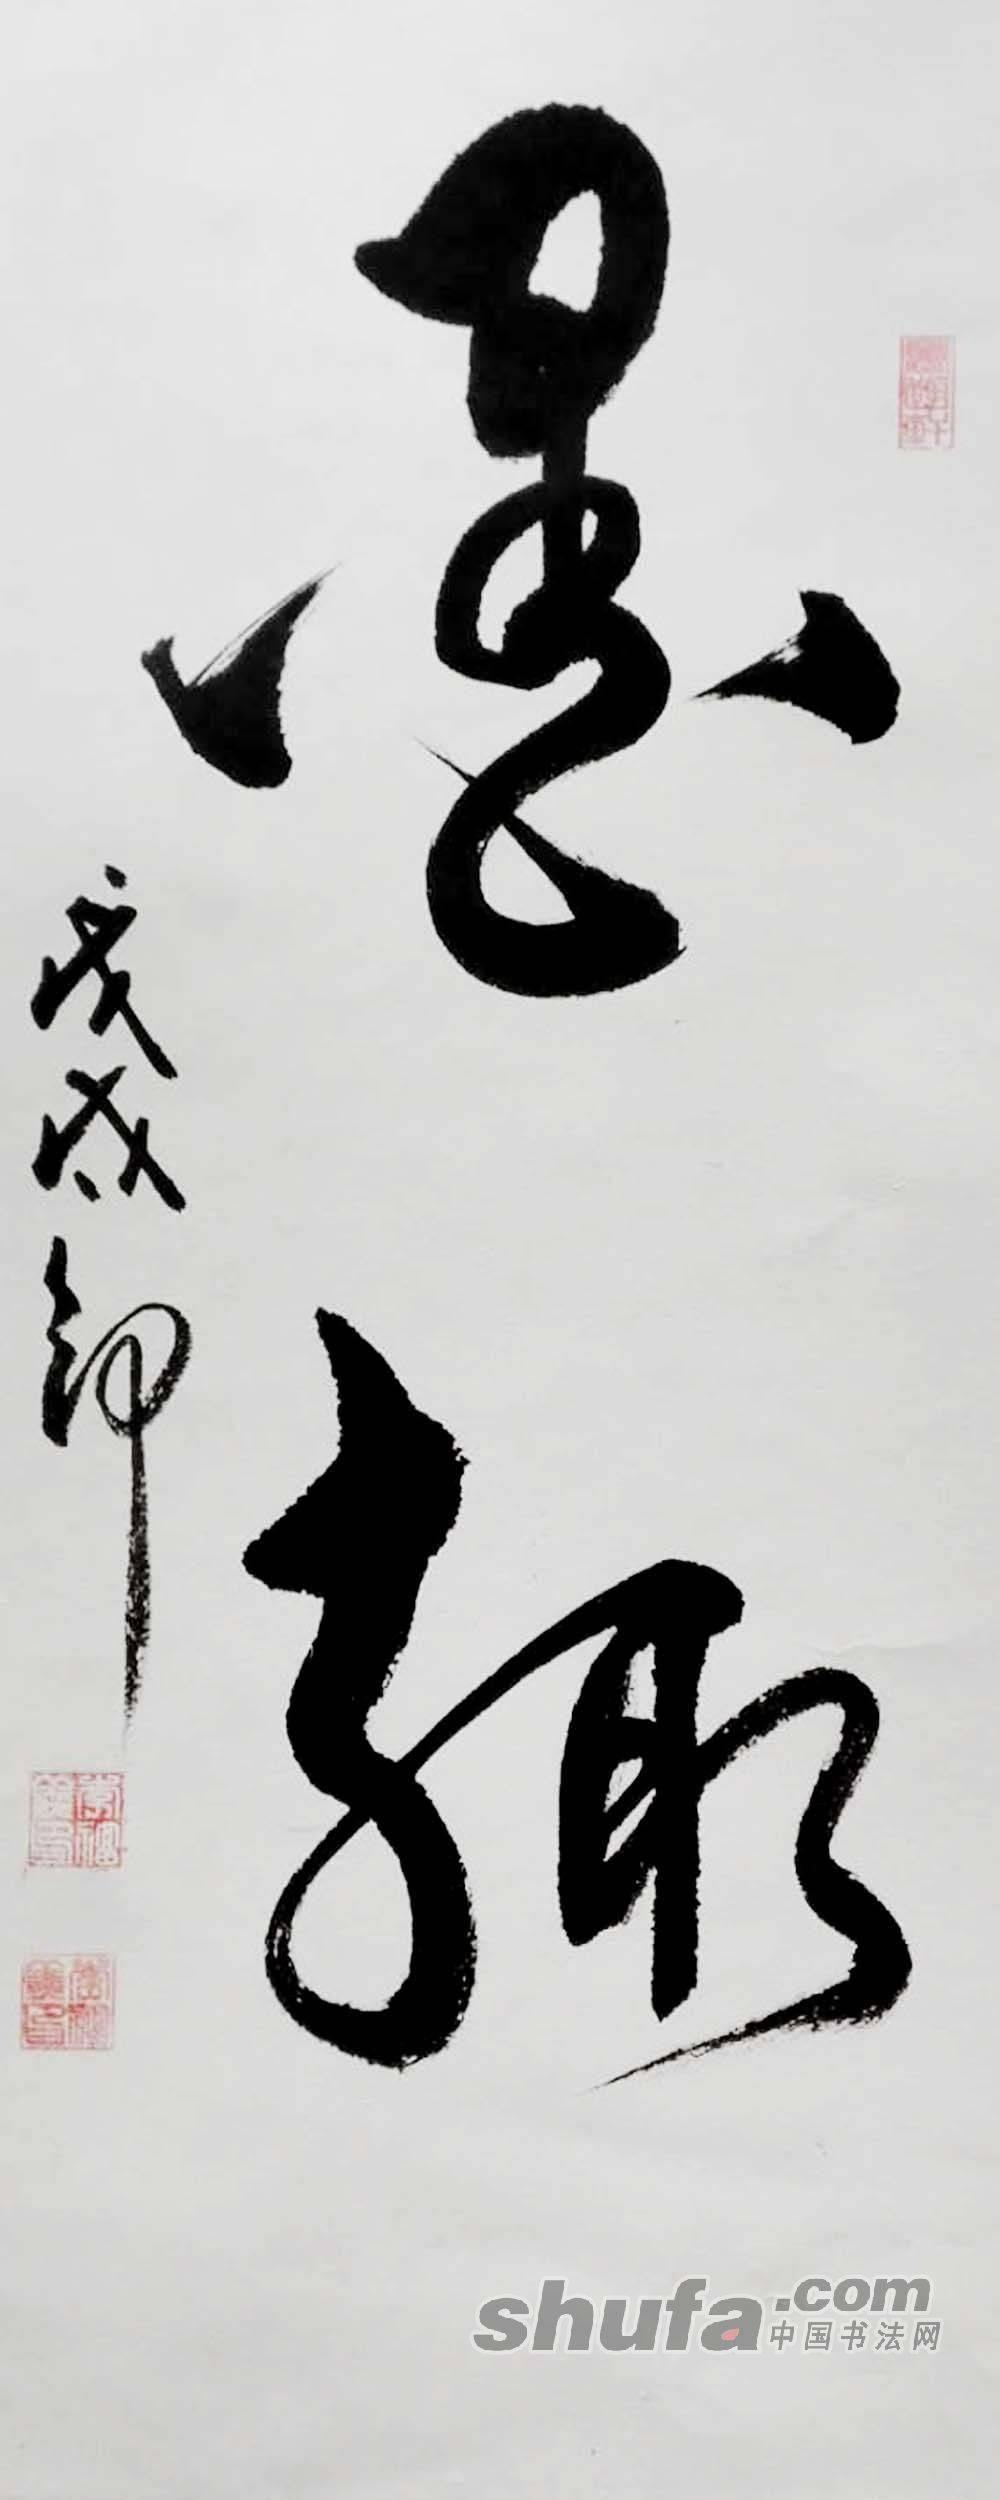 墨趣
戊戌卿
shufa.com
中国书法网